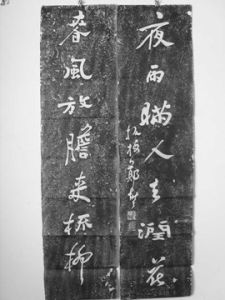 夜雨瞞人去潤花
板橋鄭燮
春風放膽来梳柳